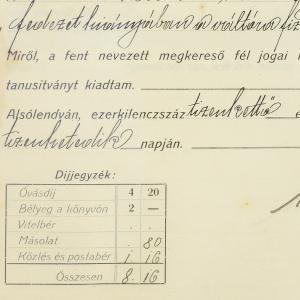 fedezet hiányában a váltóra fiz
Miről, a fent nevezett megkereső fél jogai
tanusitványt kiadtam.
Alsólendván, ezerkilenczszáz tizenkettő
tizenhetedik napján.
Díjjegyzék:
Óvásdíj 4 20
Bélyeg a könyvön 2 —
Vitelbér . .
Másolat . 80
Közlés és postabér 1. 16
Összesen 8. 16